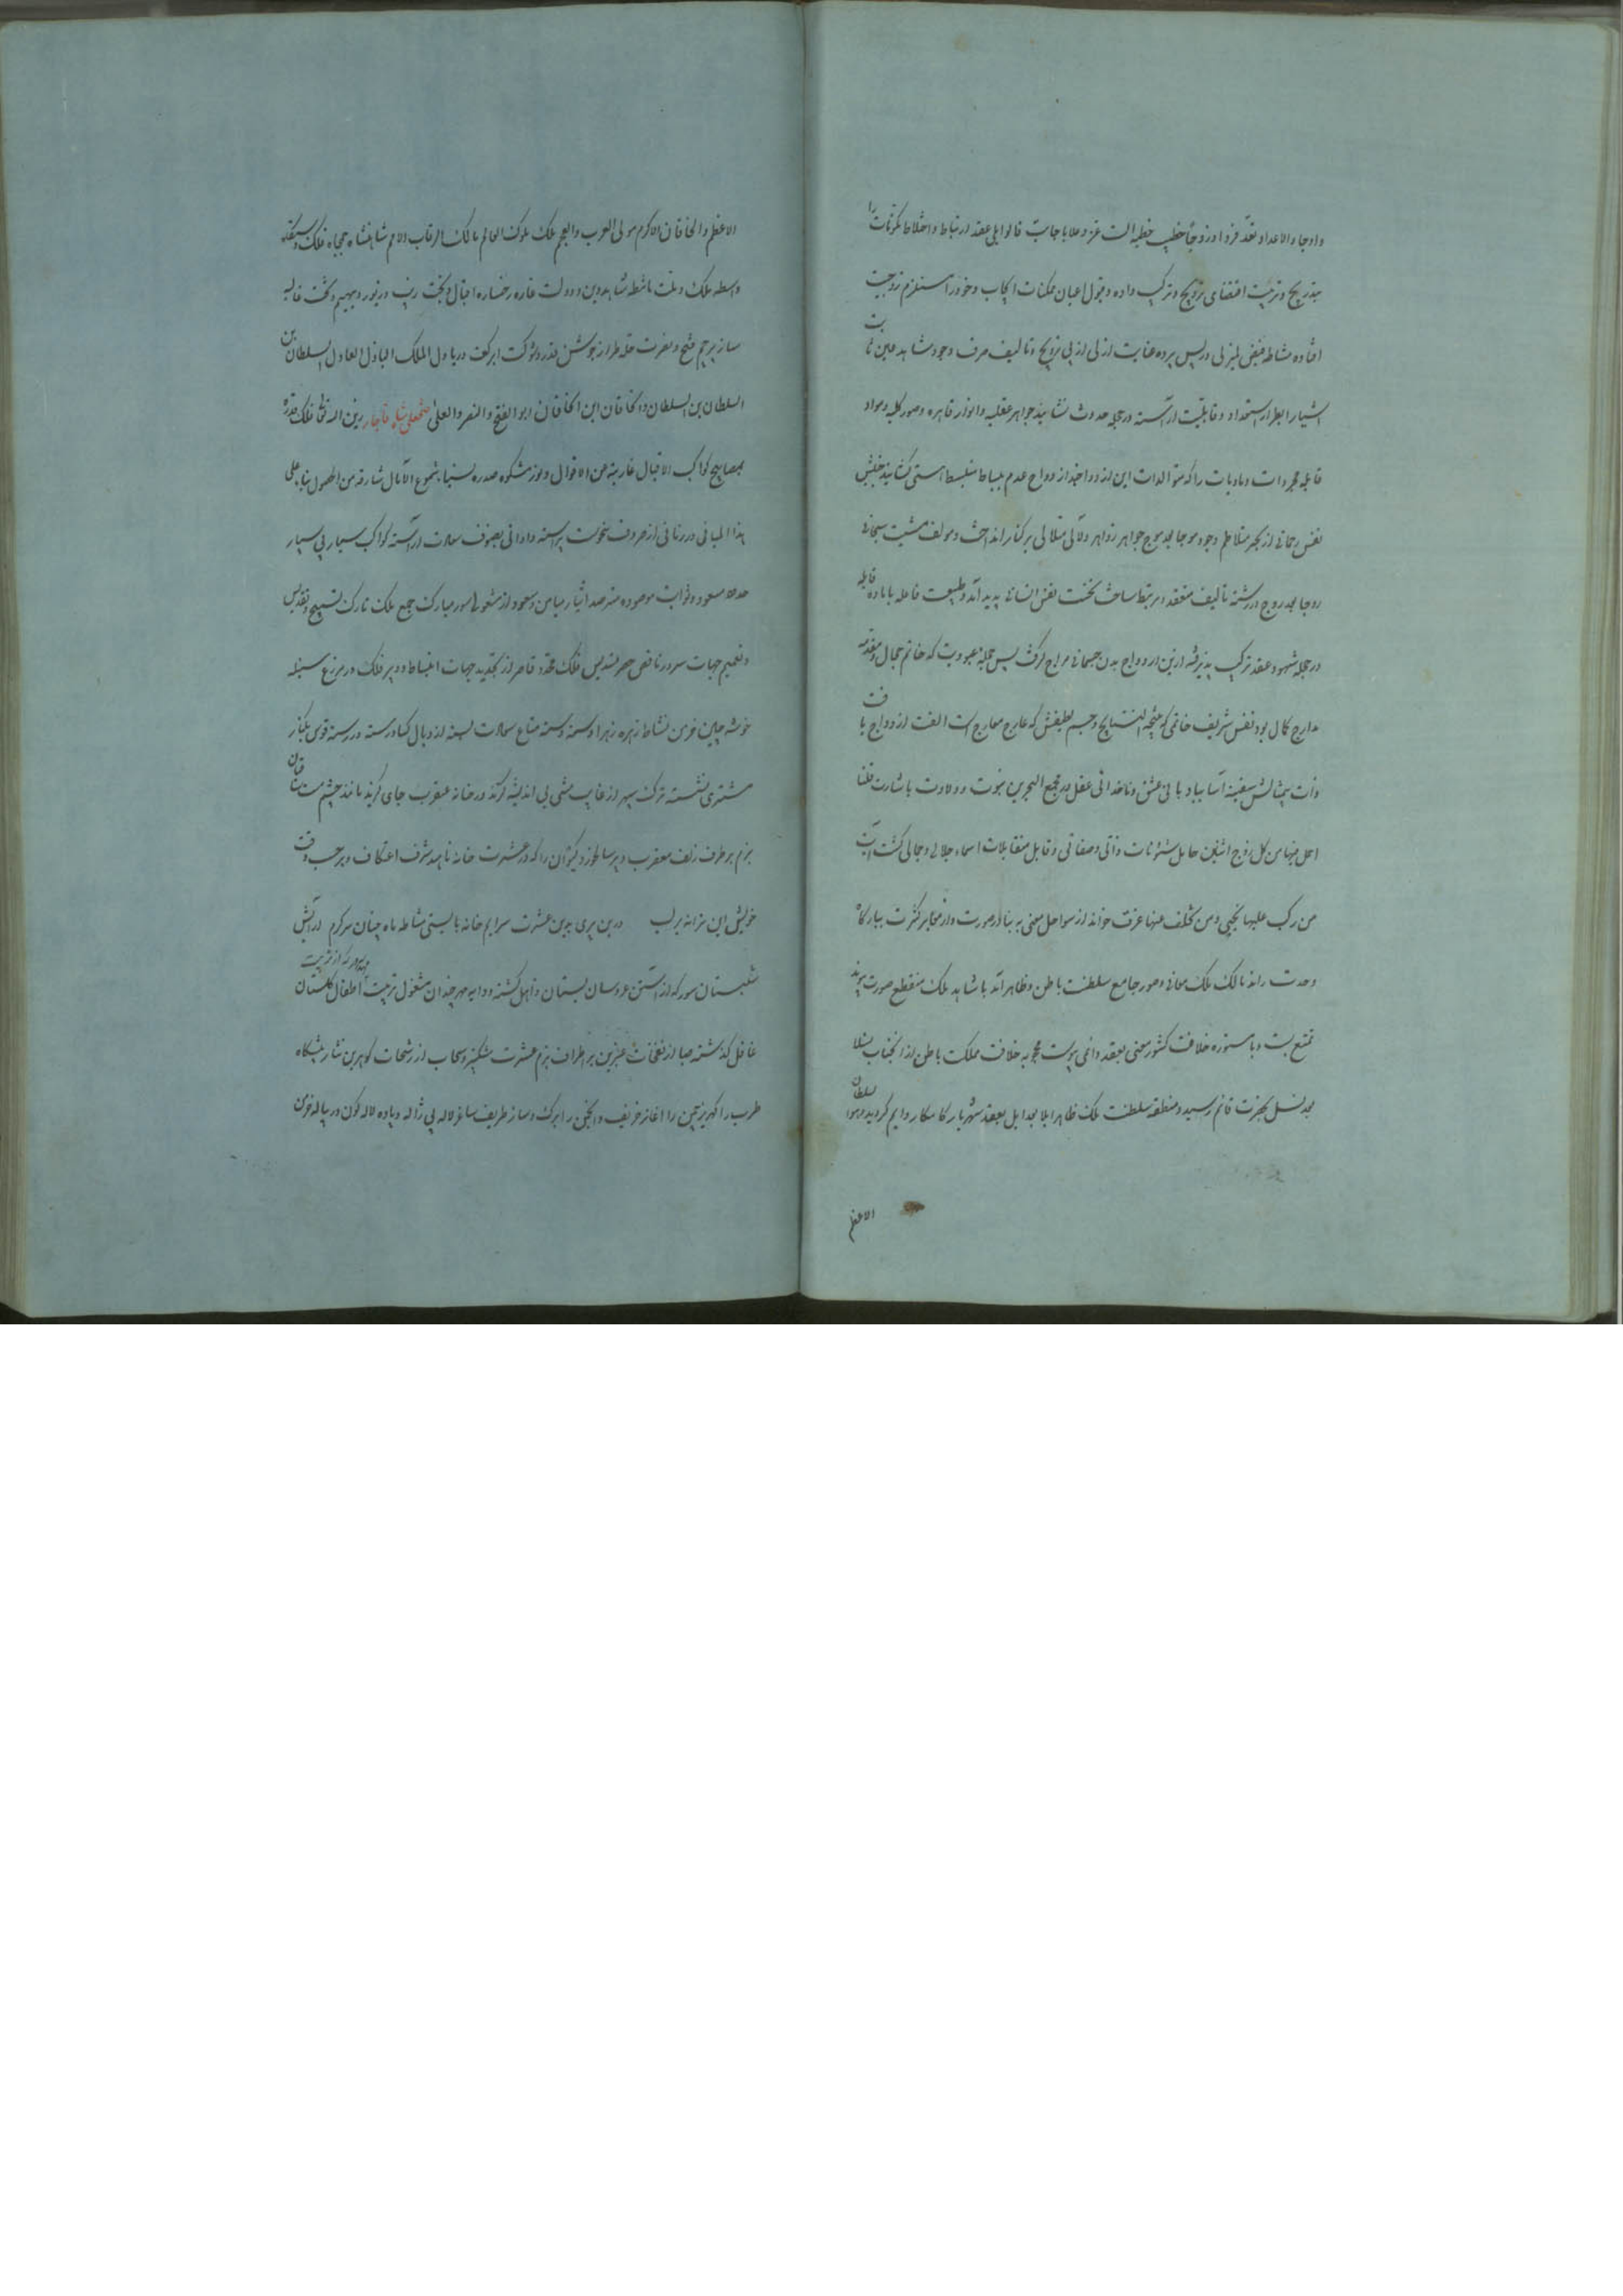 وازواجا والاعداد تعد فردا و زوجا خطیب خطبه الست عز و علا باجابت قالوا بلی عقد ارتباط و اختلاط مکونات را
بتدریج و ترتیب اقتضای تزویج و ترکیب داده و قبول اعیان ممکنات ایجاب وجود را مستلزم زوجیت
افتاده مشاطه فیض لم یزلی در پس پرده عنایت ازلی از پی تزویج و تالیف صرف وجود شاهد عین ثابت
اشیا را بطراز استعداد و قابلیت آراسته در حجله حدوث نشانید جواهر عقلیه و انوار قاهره و صور کلیه و مواد
قابله مجردات و مادیات را که متوالدات این ازدواجند از دواج عدم ببساط منبسط هستی کشانید جنبش
نفس رحمانی از بحر متلاطم وجود موجا بعد موج جواهر زواهر و لآلی متلالی بر کنار انداخت و مولف مشیت سبحانی
زوجا بعد زوج در رشته تالیف منعقد و مرتبط ساخت نخست نفس انسانی پدید آمد و طبیعت فاعله با ماده قابله
در حجله شهود عقد ترکیب پذیرفته ازین ازدواج بدن جسمانی مزاج گرفت پس حجله عبودیت که خاتم جمال و مقدمه
مدارج کمال بود نفس شریف خاتمی که نتیجة النتایج و جسم لطیفش که عارج معارج است الفت ازدواج یافت
ذات بیمثالش سفینه آسا بباد بانی عشق و ناخدائی عقل در مجمع البحرین نبوت و ولایت باشارت قلنا
احمل فیها من کل زوجین اثنین حامل شئونات ذاتی و صفاتی و قابل متقابلات اسماء جلالی و جمالی گشت آیت
من رکب علیها نجی و من تخلف عنها غرق خواند از سواحل معنی به بنادر صورت و از معابر کثرت ببارگاه
وحدت راند تا ملک ملک معانی و صور جامع سلطنت باطن و ظاهر آمد با شاهد ملک منقطع صورت پیوند
تمتع بست و با مستوره خلافت کشور معنی بعقد دائمی پیوست محجوبه خلافت مملکت باطن از آنجناب نسلا
بعد نسل بحضرت قائم رسید و منطقه سلطنت ملک ظاهر ایلا بعد ایل بعقد شهریار کامکار دایم گردید و هو السلطان
الاعظم
الاعظم والخاقان الاکرم مولی العرب والعجم ملک ملوک العالم مالک الرقاب الامم شاهنشاه جمجاه فلک دستگاه
واسطه ملک و ملت ماشطه شاهد دین و دولت غازه رخساره اقبال و بخت زیب و زیور دیهیم و تخت غالیه
ساز پرچم فتح و نصرت حله طراز جوشن قدر و شوکت ابر کف دریا دل الملک الباذل العادل السلطان بن
السلطان بن السلطان والخاقان ابن الخاقان ابوالفتح والنصر والعلی فتحعلی شاه قاجار زین الله تعالی فلک قدره
بمصابیح کواکب الاقبال عاریة عن الافول و نور مشکوة صدره بسنیا شموع الآمال شارقه من الحصول بنا علی
هذا المبانی در زمانی از صروف نحوست پیراسته و اوانی بصنوف سعادت آراسته کواکب سیار پی سپار
حدود مسعود و ثوابت موصوده مترصد ایثار میامن و سعود از مشغولی سور مبارک جمع ملک تارک تسبیح و تقدیس
و تعمیم جهات سرور ناقض حصر تسدیس فلک محدد قاصر از تحدید جهات انبساط و دبیر فلک در مزرع سنبله
خوشه چین خرمن نشاط زهره زهرا دسته دسته متاع سعادت بسته از وبال کساد رسته در رسته قوس بکنار
مشتری نشسته ترک سپهر از غایت مستی بی اندیشه گزند در خانه عقرب جای گزیند مانند چشم مست فتان
بزم بر طرف زلف معقرب و پیر سالخورد کیوان را که در عشرت خانه ناهید شرف اعتکاف و بر حسب وقت
خویش این ترانه بر لب در بن پری بدین عشرت سرایم خانه بایستی مشاطه ماه چنان سرگرم در آتش
شبستان سور که از آبستن عروسان بستان ذاهل گشته و دایه مهر چندان مشغول تربیت اطفال گلستان
غافل گذشته صبا از نفخات عنبرین بر اطراف بزم عشرت مشکبیز و سحاب از رشحات گوهرین نثار پیشگاه
طرب را گهرریز چمن را آغاز خریف و انجمن را برگ و ساز ظریف ساغر لاله پی ژاله و باده لاله گون در پیاله خزان